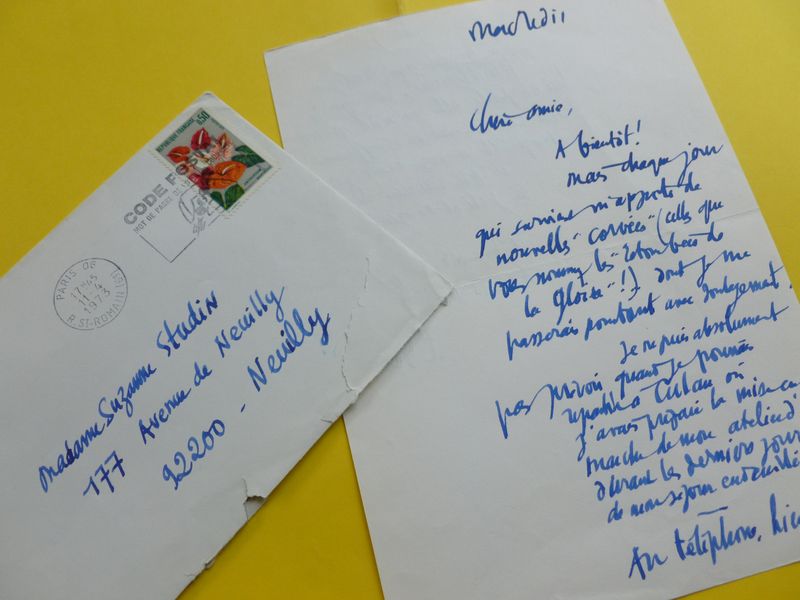 REPUBLIQUE FRANÇAISE
0,50
CODE POSTAL
MOT DE PASSE DE
PARIS 06
17H45
11-4
1973
R. ST-ROMAIN (6E)
Madame Suzanne Studin
177 Avenue de Neuilly
92200 - Neuilly
mercredi,
Chère amie,
A bientôt!
mais chaque jour
qui survient m'apporte de
nouvelles "corvées" (celles que
vous nommez les "retombées de
la gloire"!) dont je me
passerais pourtant avec soulagement.
Je ne puis absolument
pas prévoir quand je pourrai
repartir à
j'avais préparé la mise en
marche de mon atelier d'
durant les derniers jours
de mon séjour
Au téléphone,